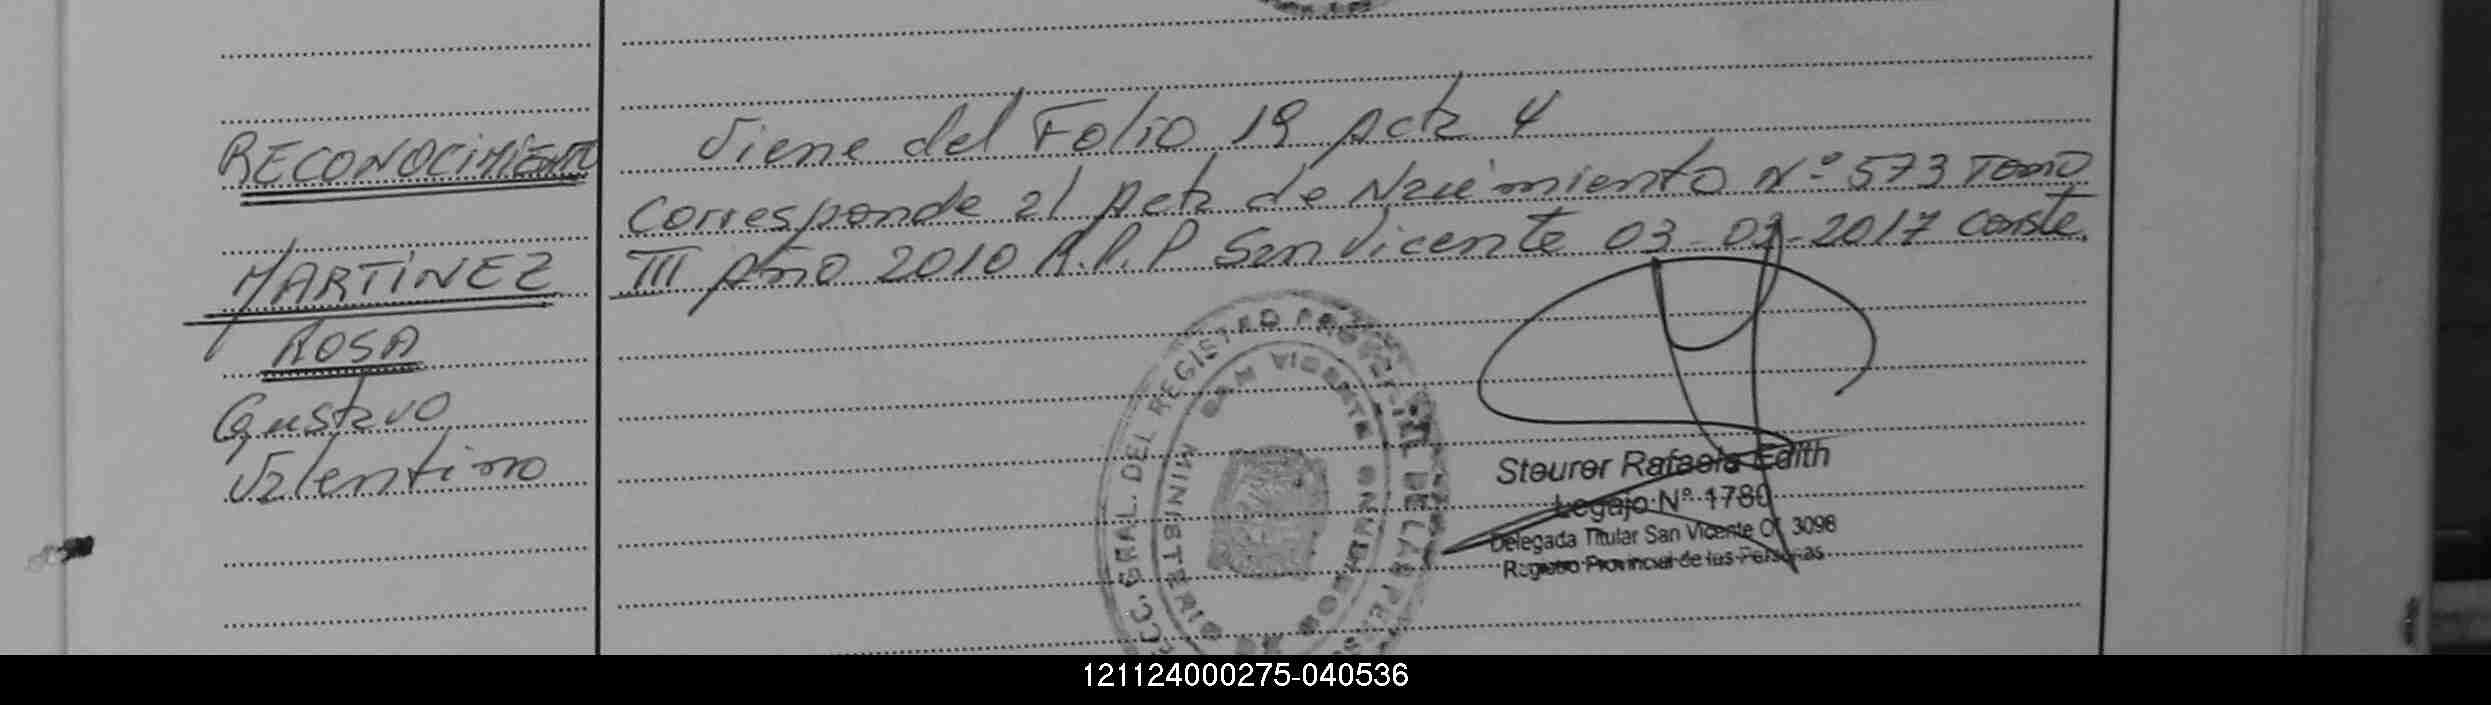 RECONOCIMIENTO
MARTINEZ
ROSA
Gustavo
Valentino
Viene del Folio 19 Acta 4
Corresponde al Acta de Nacimiento N° 573 Tomo
III Año 2010 R.P.P San Vicente 03-02-2017 conste.
CC. GRAL. DEL REGISTRO DE LAS
SAN VICENTE
MINISTERIO
Steurer Rafaela Edith
Legajo N° 1780
Delegada Titular San Vicente Of. 3096
Registro Provincial de las Personas
121124000275-040536